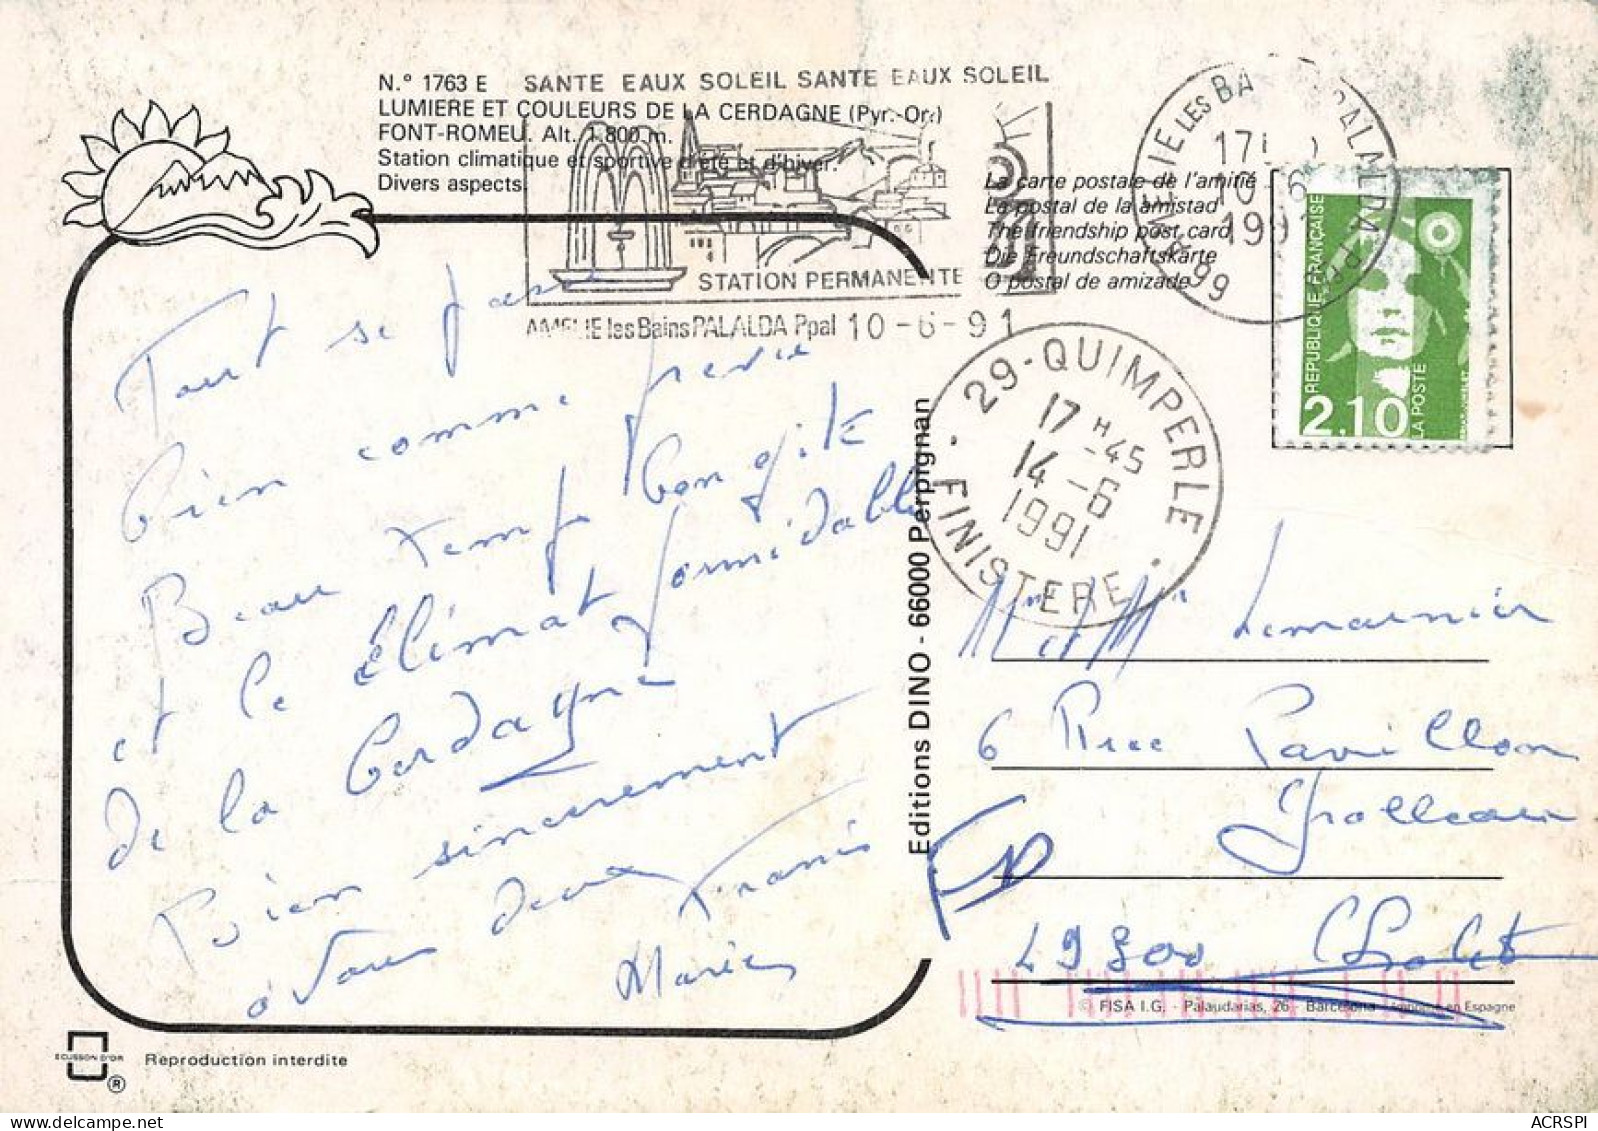 N.° 1763 E
LUMIERE ET COULEURS DE LA CERDAGNE (Pyr.-Or.)
FONT-ROMEU. Alt. 1.800 m.
Station climatique et sportive d'été et d'hiver.
Divers aspects.
SANTE EAUX SOLEIL SANTE EAUX SOLEIL
STATION PERMANENTE
AMELIE les Bains PALALDA Ppal 10-6-91
La carte postale de l'amitié
La postal de la amistad
The friendship post card
Die Freundschaftskarte
O postal de amizade
REPUBLIQUE FRANÇAISE
2.10
LA POSTE
29-QUIMPERLE
17 H 45
14-6
1991
FINISTERE
Tout se passe
bien comme prévu
Beau temp bon gite
et le Climat formidable
de la Cerdagne
Bien sincerement
à vous deux Francis
Marie
Editions DINO - 66000 Perpignan
Mr et Mme
6 Rue Pavillon
Grolleau
49300 Cholet
© FISA I.G. - Palaudarias, 26 - Barcelona - Imprimé en Espagne
ECUSSON D'OR
®
Reproduction interdite
ACRSPI